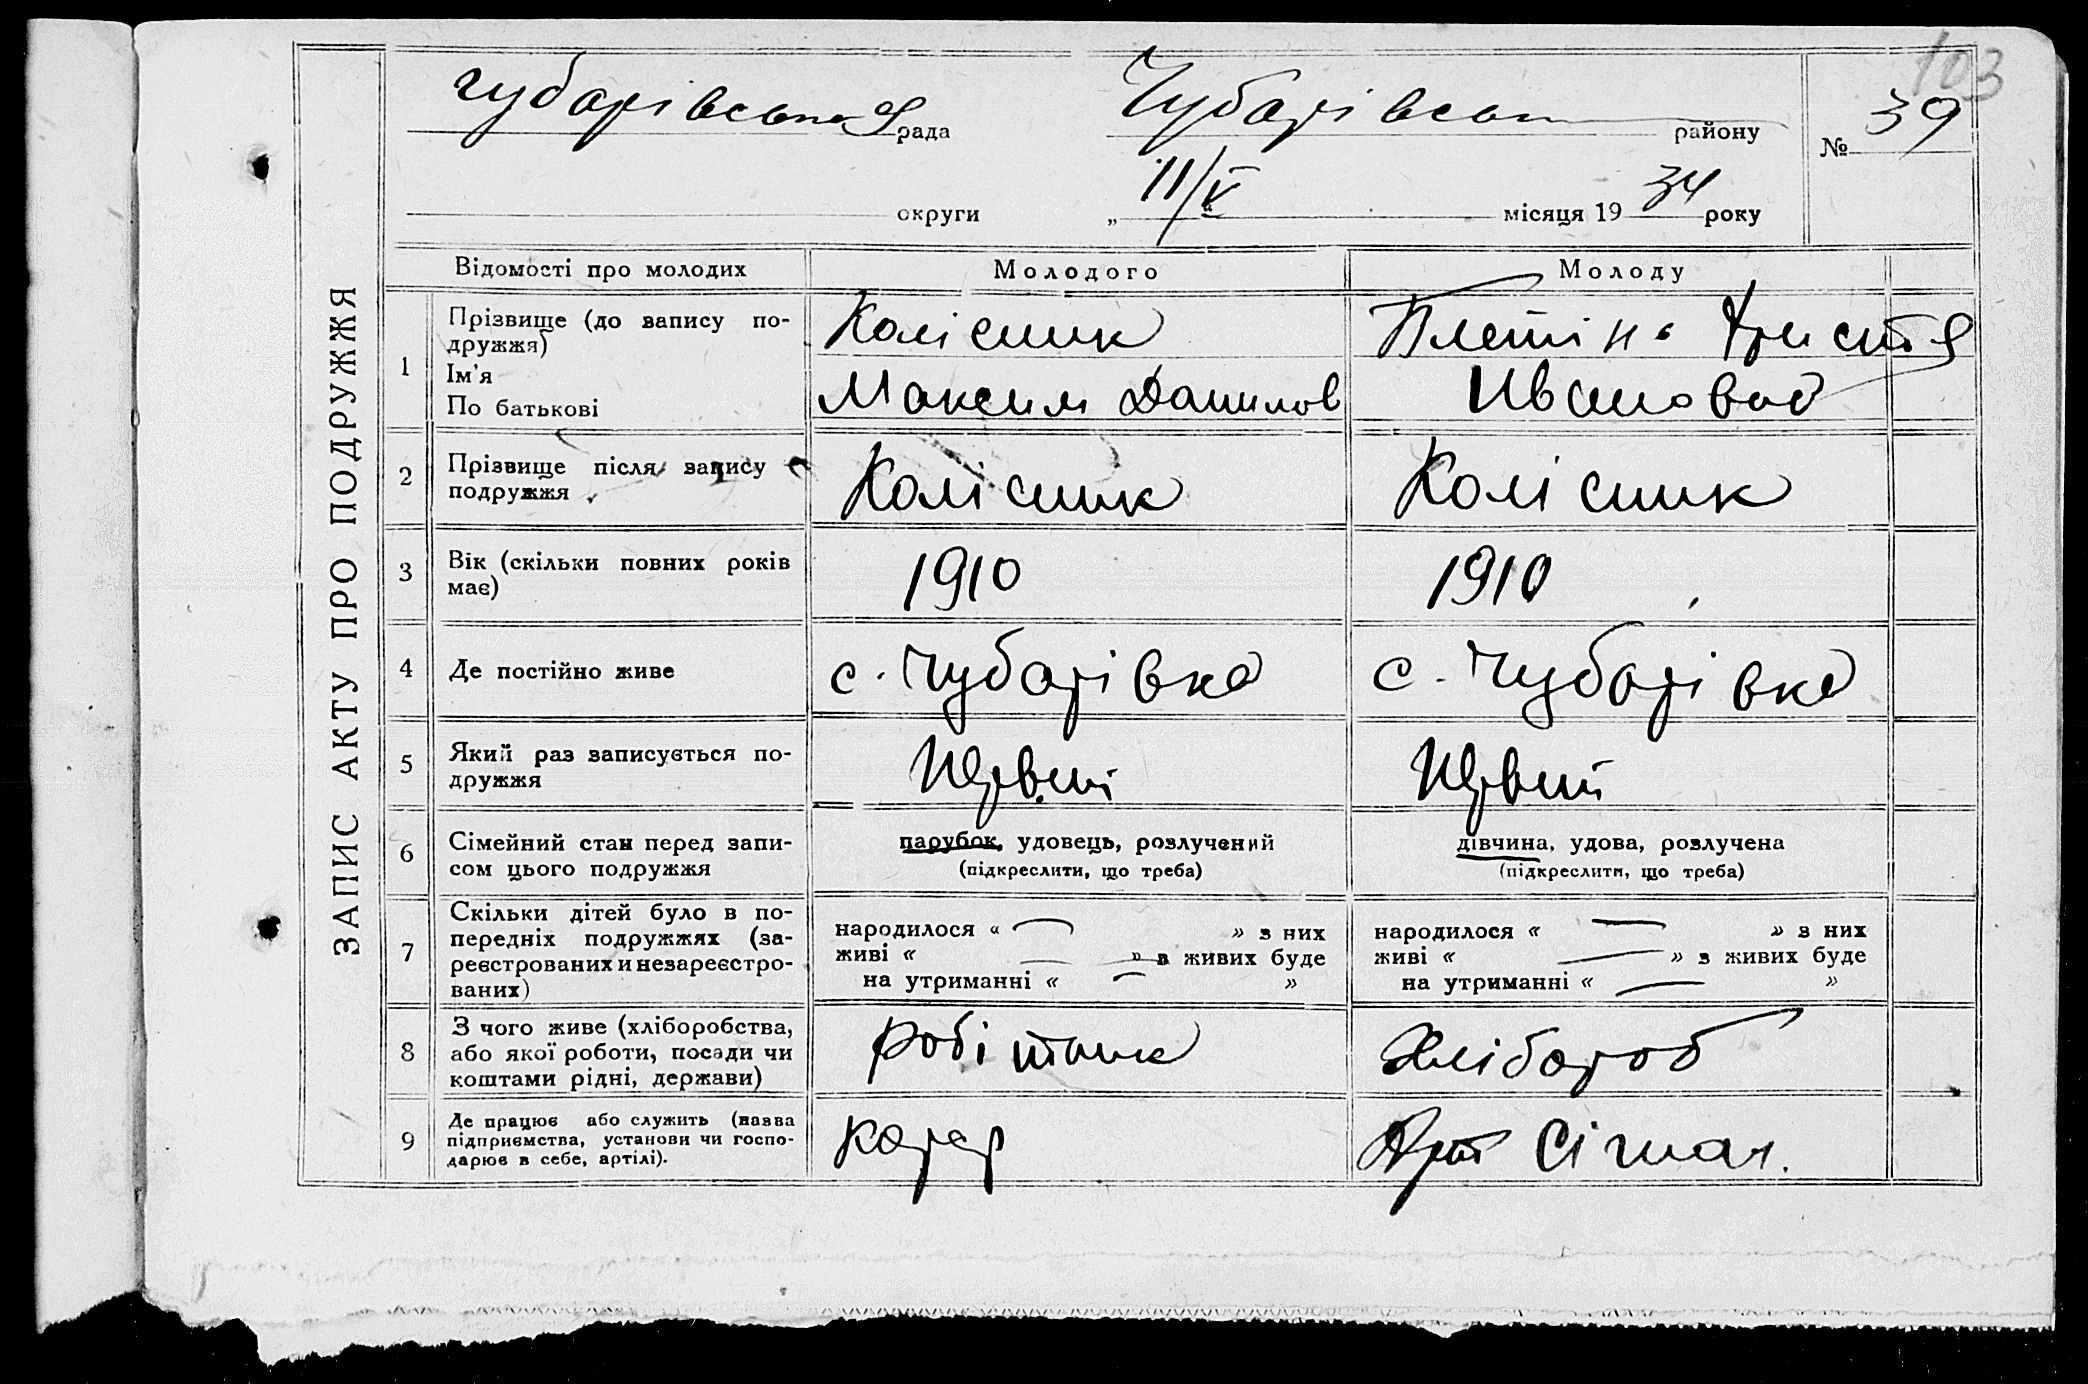 103
Чубарівська рада Чубарівськ району № 39
округи „11/V“ місяця 1934 року
ЗАПИС АКТУ ПРО ПОДРУЖЖЯ
Відомості про молодих Молодого Молоду
1 Прізвище (до запису по-
дружжя)
Ім'я
По батькові
Колісник
Максим Данилов
Плетіна Христя
Ивановна
2 Прізвище після запису
подружжя
Колісник Колісник
3 Вік (скільки повних років
має)
1910 1910
4 Де постійно живе с. Чубарівка с. Чубарівка
5 Який раз записується по-
дружжя
Первий Первий
6 Сімейний стан перед запи-
сом цього подружжя
парубок, удовець, розлучений
(підкреслити, що треба)
дівчина, удова, розлучена
(підкреслити, що треба)
7 Скільки дітей було в по-
передніх подружжях (за-
реєстрованих и незареєстро-
ваних)
народилося « — » з них
живі « — » з живих буде
на утриманні « — »
народилося « — » з них
живі « — » з живих буде
на утриманні « — »
8 З чого живе (хліборобства,
або якої роботи, посади чи
коштами рідні, держави)
робітник Хлібороб
9 Де працює або служить (назва
підприємства, установи чи госпо-
дарює в себе, артілі).
Арт